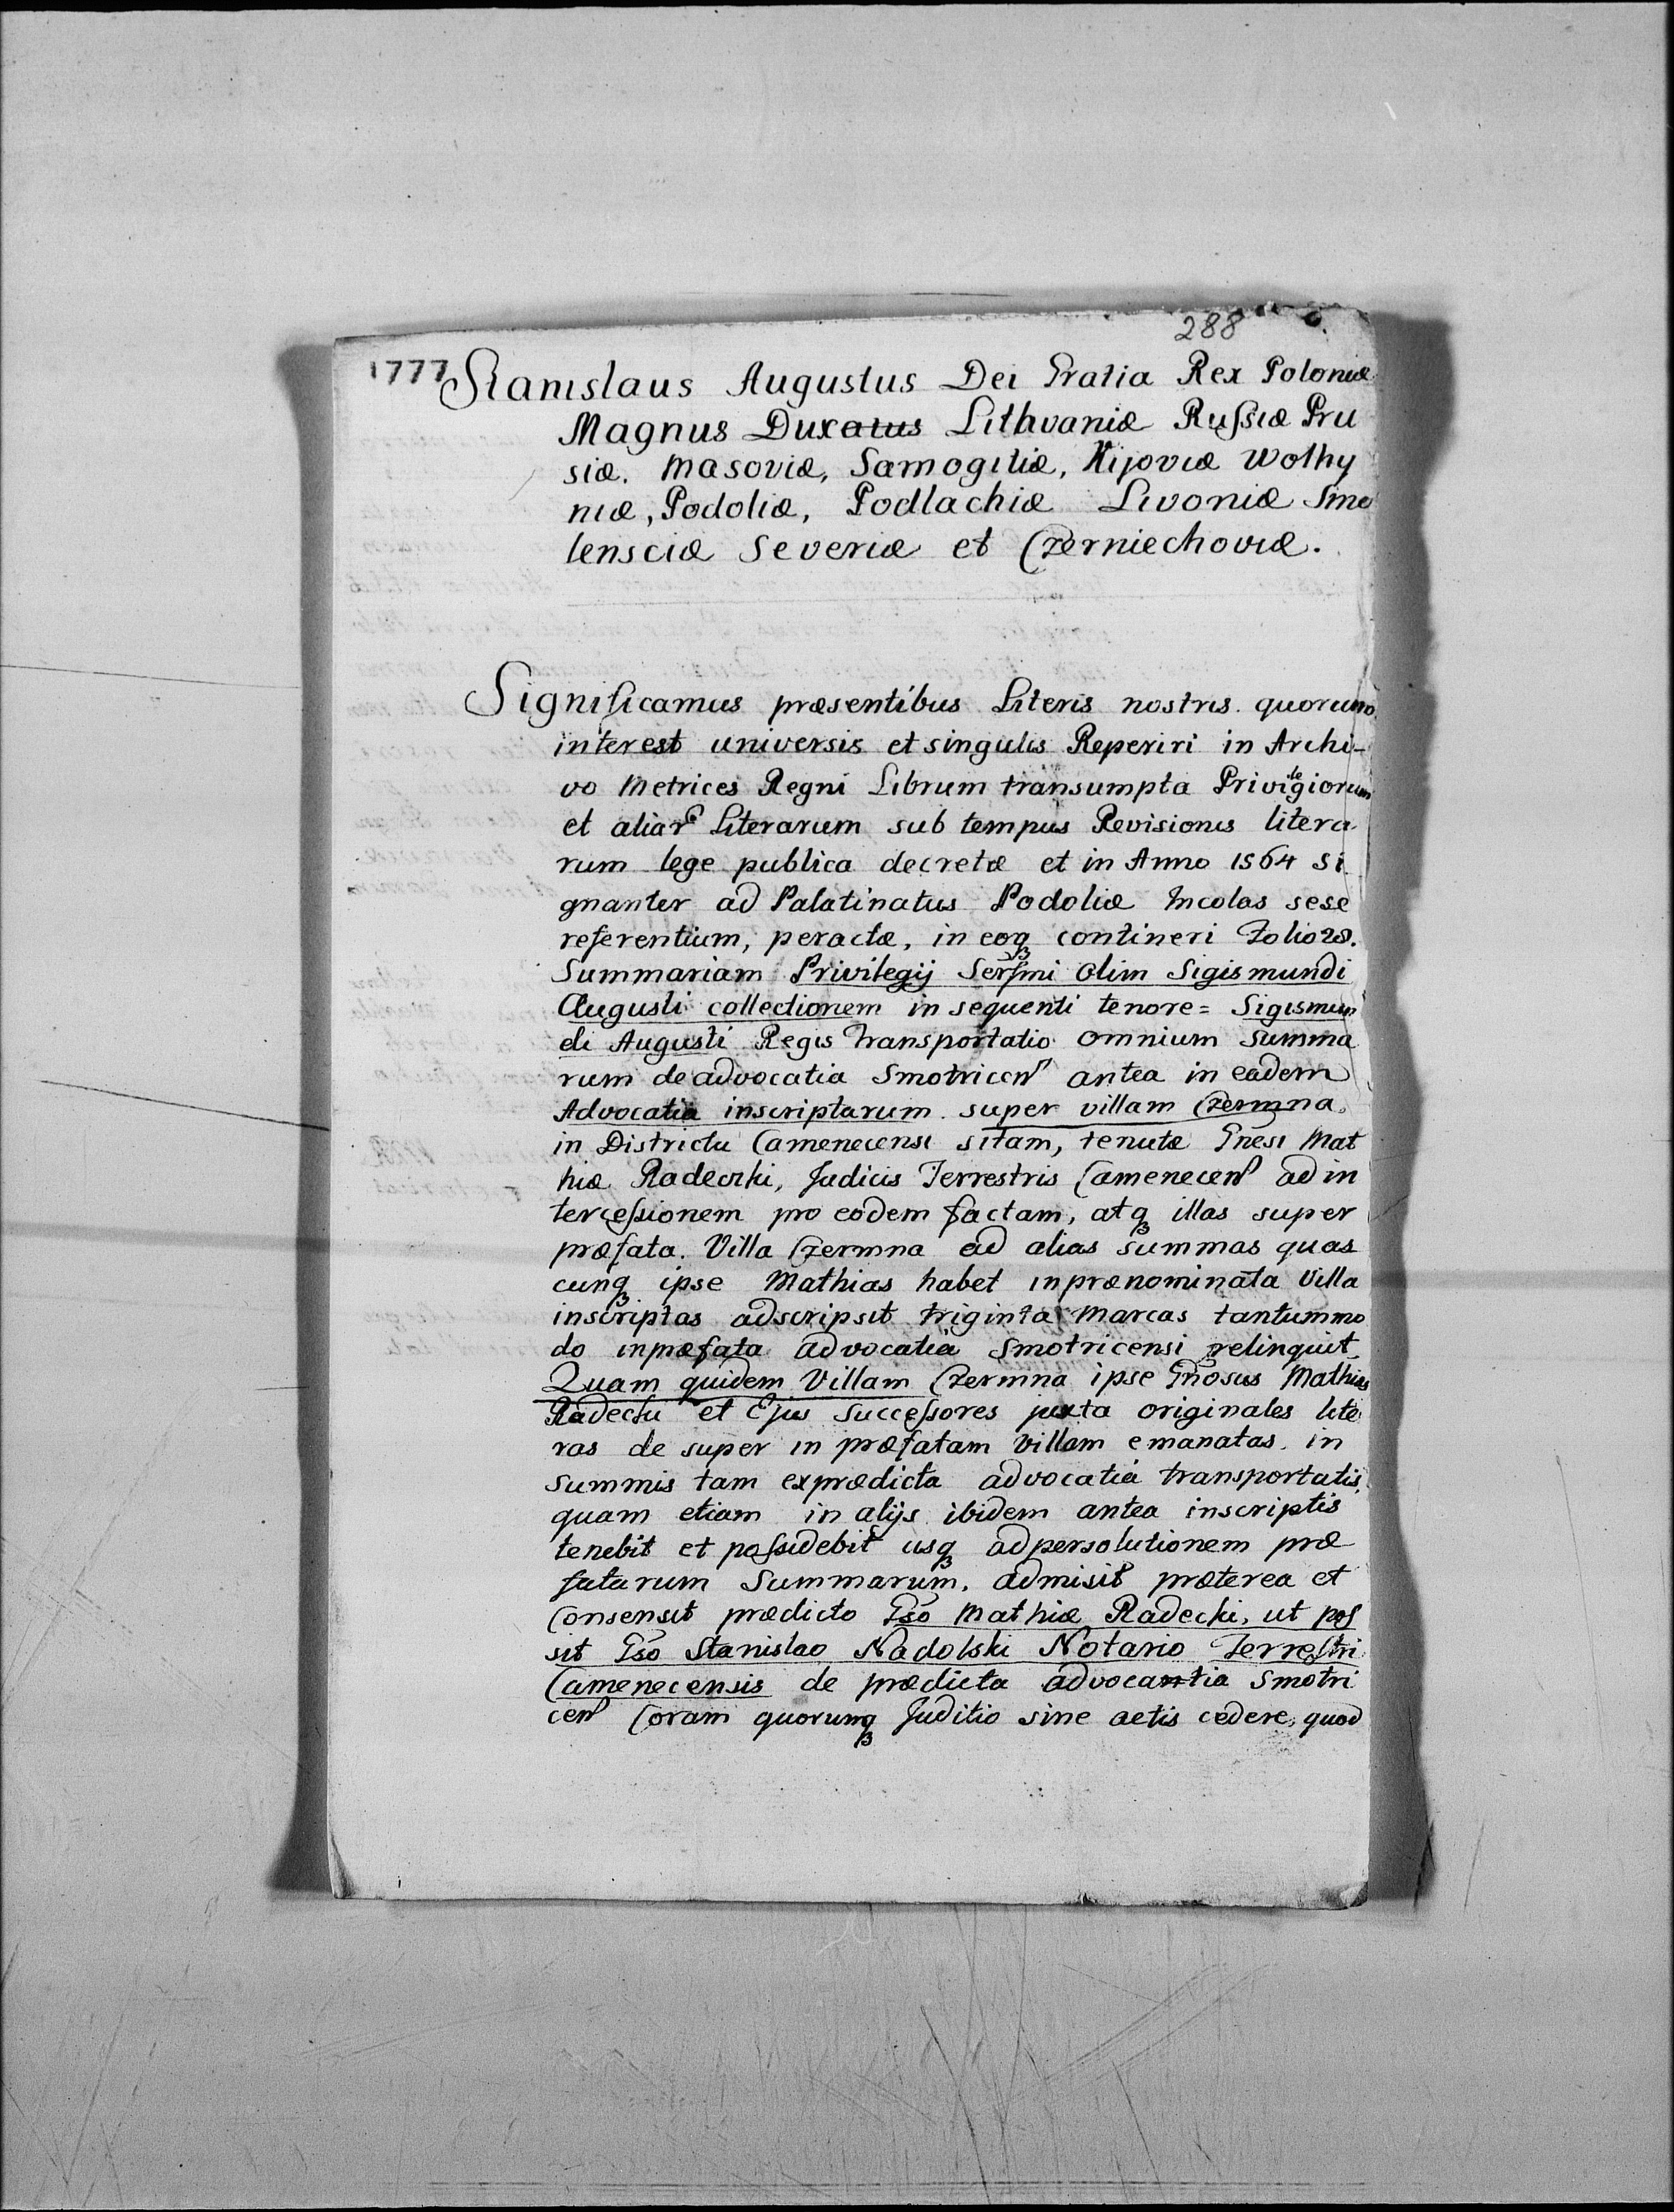 288
1777
Stanislaus Augustus Dei Gratia Rex Poloniæ
Magnus Duxatus Lithvaniæ Russiæ Pru
siæ. Masoviæ, Samogitiæ, Kijoviæ Wolhy
niæ, Podoliæ, Podlachiæ Livoniæ Smo
lensciæ Severiæ et Czerniechoviæ.
Significamus præsentibus Literis nostris quorum
interest universis et singulis Reperiri in Archi-
vo Metrices Regni Librum transumpta Privilegiorum
et aliar Literarum sub tempus Revisionis litera
rum lege publica decretæ et in Anno 1564 si
gnanter ad Palatinatus Podoliæ Incolas sese
referentium, peractæ, in eoq3 contineri Folio 28.
Summariam Privilegij Serssmi olim Sigismundi
Augusti collectionem in sequenti tenore = Sigismun
di Augusti Regis Transportatio omnium Summa
rum de advocatia Smotricen antea in eadem
Advocatia inscriptarum super villam Czermna
in Districtu Camenecensi sitam, tenutæ Gnesi Mat
hiæ Radecski, Judicis Terrestris Camenecen ad in
tercessionem pro eodem factam, atq3 illas super
præfata. Villa Czermna ad alias summas quas
cunq3 ipse Mathias habet in prænominata Villa
inscriptas adscripsit triginta Marcas tantummo
do in præfata advocatia Smotricensi relinquit
Quam quidem Villam Czermna ipse Gnosus Mathias
Radecki et Ejus Successores juxta originales lite
ras de super in præfatam Villam emanatas. in
summis tam ex prædicta advocatiá transportatis,
quam etiam in alijs ibidem antea inscriptis
tenebit et possidebit usq3 ad persolutionem præ
fatarum Summarum. admisit præterea et
Consensit prædicto Gso Mathiæ Radecki, ut pos
sit Gso Stanislao Nadolski Notario Terrestri
Camenecensis de prædicta advocantia Smotri
cen Coram quorumq3 Juditio sine actis cedere, quod